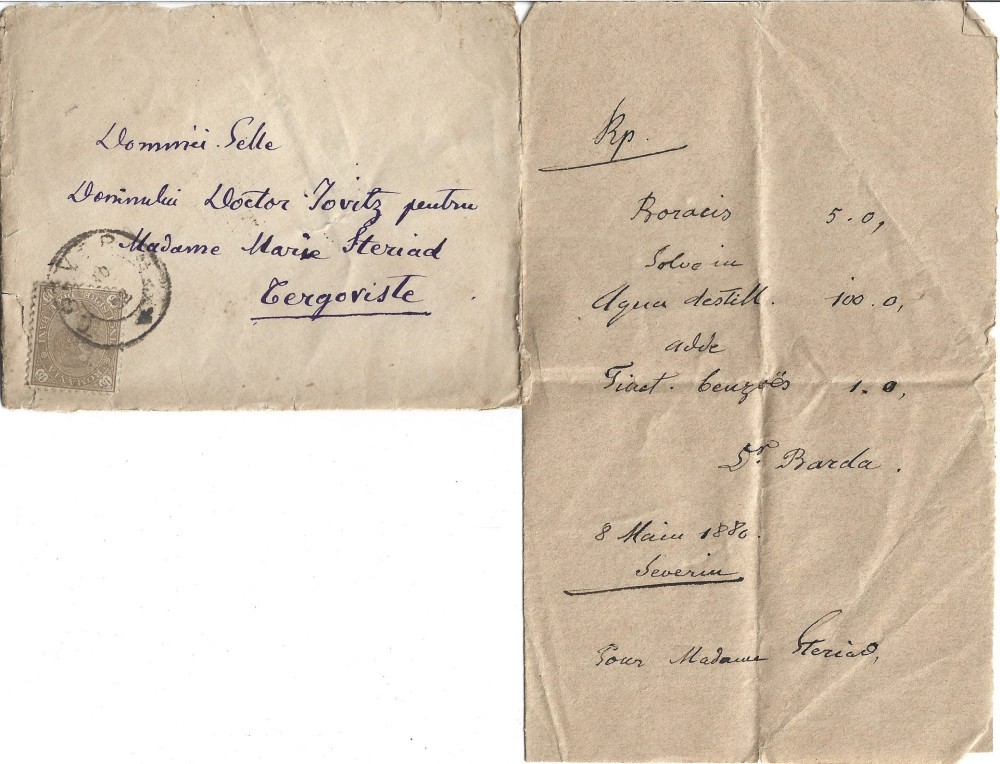 Domniei Selle
Domnului Doctor Iovitz pentru
Madame Marie Steriad
Tergoviste
Rp.
Boracis 5.0,
Solve in
Aqua destill. 100.0,
adde
Tinct. benzoës 1.0,
Dr Barda.
8 Maiu 1880.
Severin
Pour Madame Steriad,